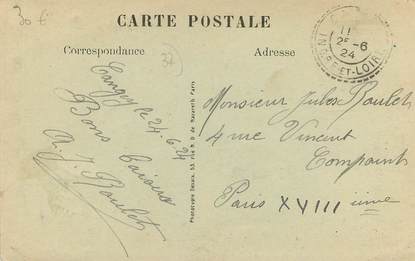 30 €
CARTE POSTALE
Correspondance
Adresse
37
11
25-6
24
ET-LOIRE
le 24.6.24
Bons baisers
A. J. Boulet
Phototypie Desaix, 53, rue N. D. de Nazareth Paris
Monsieur Jules Boulet
4 rue Vincent
Compoint
Paris XVIII ième